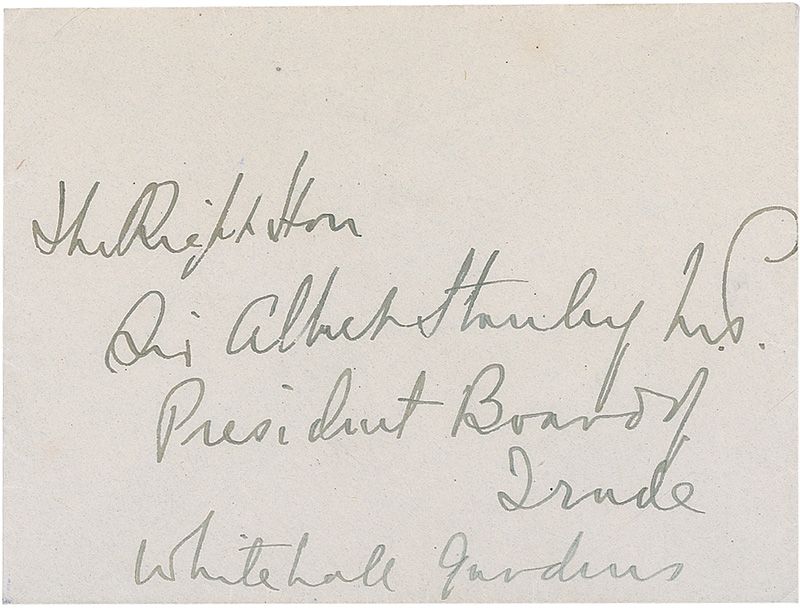 The Right Hon
Sir Albert Stanley M.P.
President Board of
Trade
Whitehall Gardens